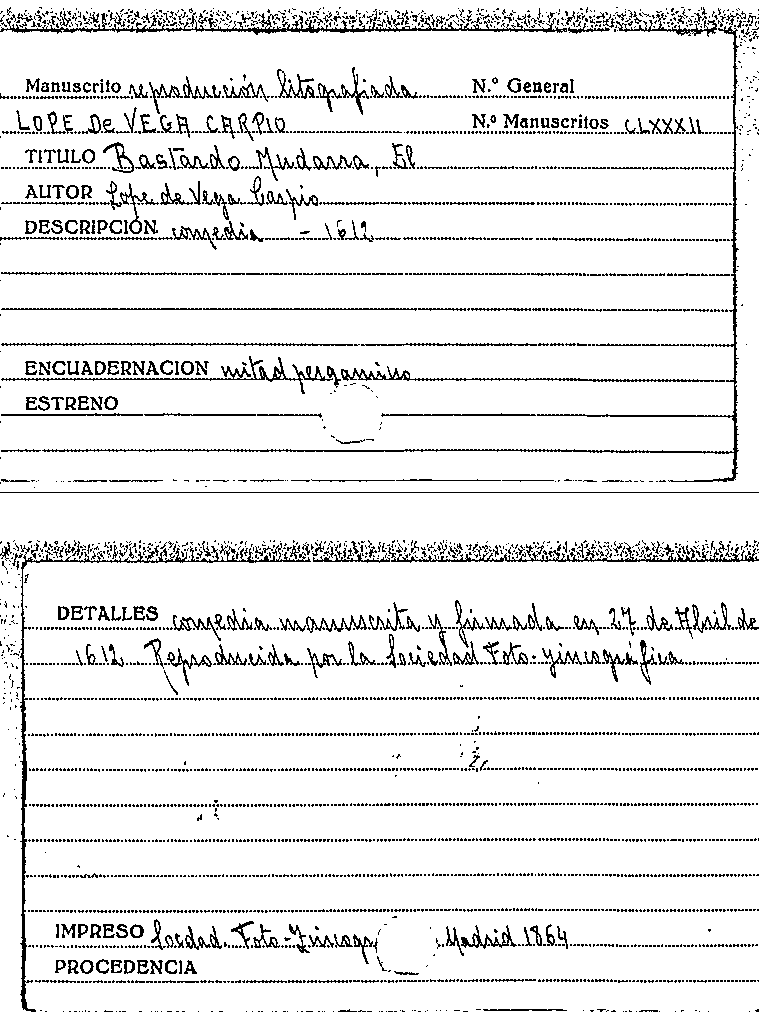 Manuscrito reproducción litografiada N.º General
LOPE De VEGA CARPIO N.º Manuscritos CLXXXII
TITULO Bastardo Mudarra, El
AUTOR Lope de Vega Carpio
DESCRIPCIÓN comedia - 1612
ENCUADERNACION mitad pergamino
ESTRENO
DETALLES comedia manuscrita y firmada en 27 de Abril de
1612 Reproducida por la Sociedad Foto-zincográfica
IMPRESO Socdad. Foto-Zincogr Madrid 1864
PROCEDENCIA